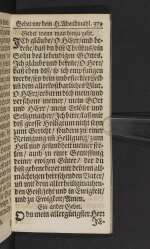 Gebet vor dem H. Abendmahl. 379
Gebet wenn man hinzu geht.
Ich glaube / O HErr / und be-
kenne / daß du bist Christus / ein
Sohn des lebendigen GOttes.
Ich glaube und bekenne / O HErr
daß eben diß / so ich empfangen
werde / sey dein unbefleckter Leib
und dein allerkostbarlichstes Blut.
O HErr / erbarm dich mein / und
verschone meiner / mein GOtt
und HErr / mein Erlöser und
Seligmacher / Ich bitte / laß mir
das grosse Heiligthum nicht seyn
zum Gericht / sondern zu einer
Reinigung und Heiligung / zum
Heil und Gesundheit meiner See-
len / und zu einer Genießung
deiner ewigen Güter / der du
bist gebenedeyet mit deinem all-
mächtigen herrschenden Vatter /
und dem allerheiligmachen-
den Geist / jetzt und in Ewigkeit /
und zu Ewigkeit / Amen.
Ein ander Gebet.
O du mein allergütigster Herr